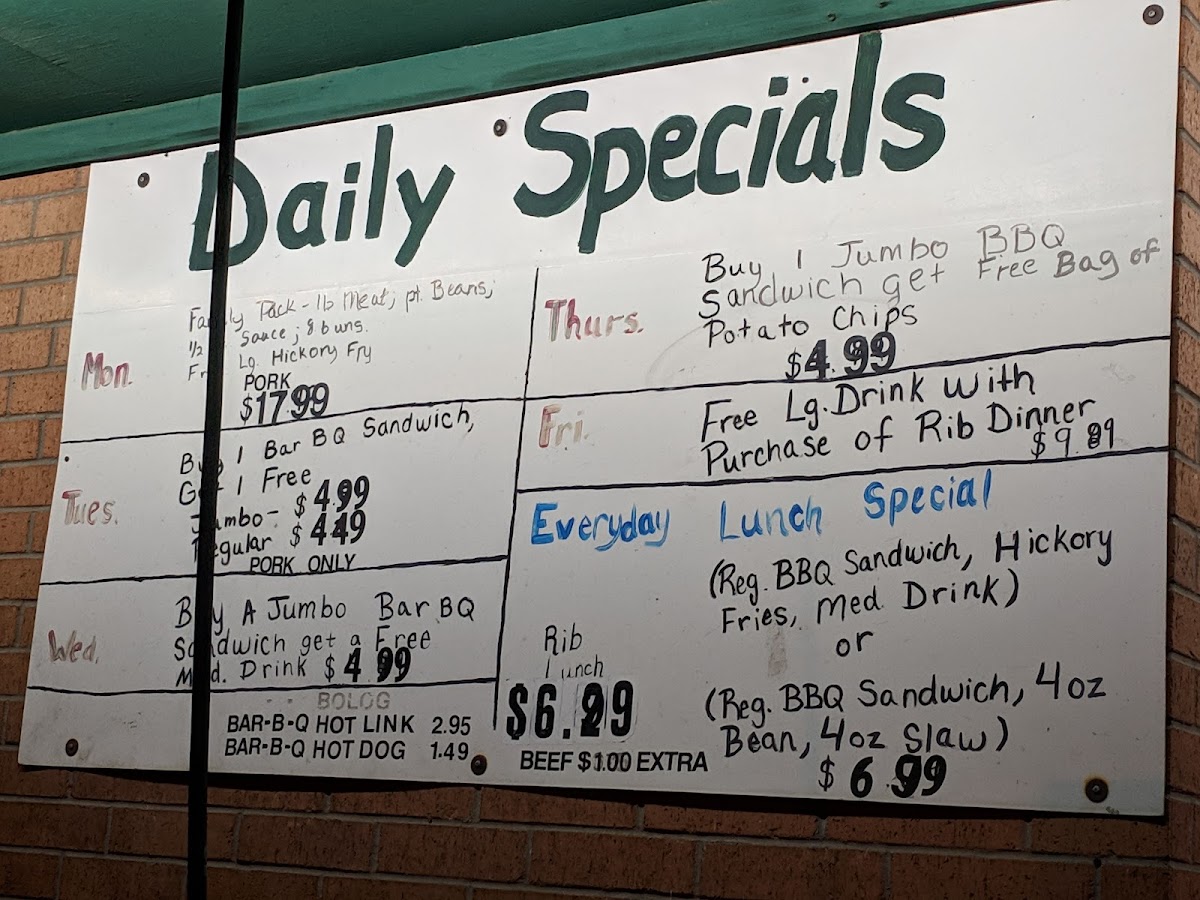 Daily Specials
Mon.
Family Pack - 1lb Meat; pt. Beans;
1/2 Sauce; 8 buns.
Lg. Hickory Fry
PORK
$17.99
Tues.
Buy 1 Bar BQ Sandwich,
Get 1 Free
Jumbo - $4.99
Regular $4.49
PORK ONLY
Wed.
Buy A Jumbo Bar BQ
Sandwich get a Free
Med. Drink $4.99
BOLOG
BAR-B-Q HOT LINK 2.95
BAR-B-Q HOT DOG 1.49
Thurs.
Buy 1 Jumbo BBQ
Sandwich get Free Bag of
Potato Chips
$4.99
Fri.
Free Lg. Drink with
Purchase of Rib Dinner
$9.
Everyday Lunch Special
(Reg. BBQ Sandwich, Hickory
Fries, Med. Drink)
or
(Reg. BBQ Sandwich, 4oz
Bean, 4oz Slaw)
$6.99
Rib
Lunch
$6.29
BEEF $1.00 EXTRA